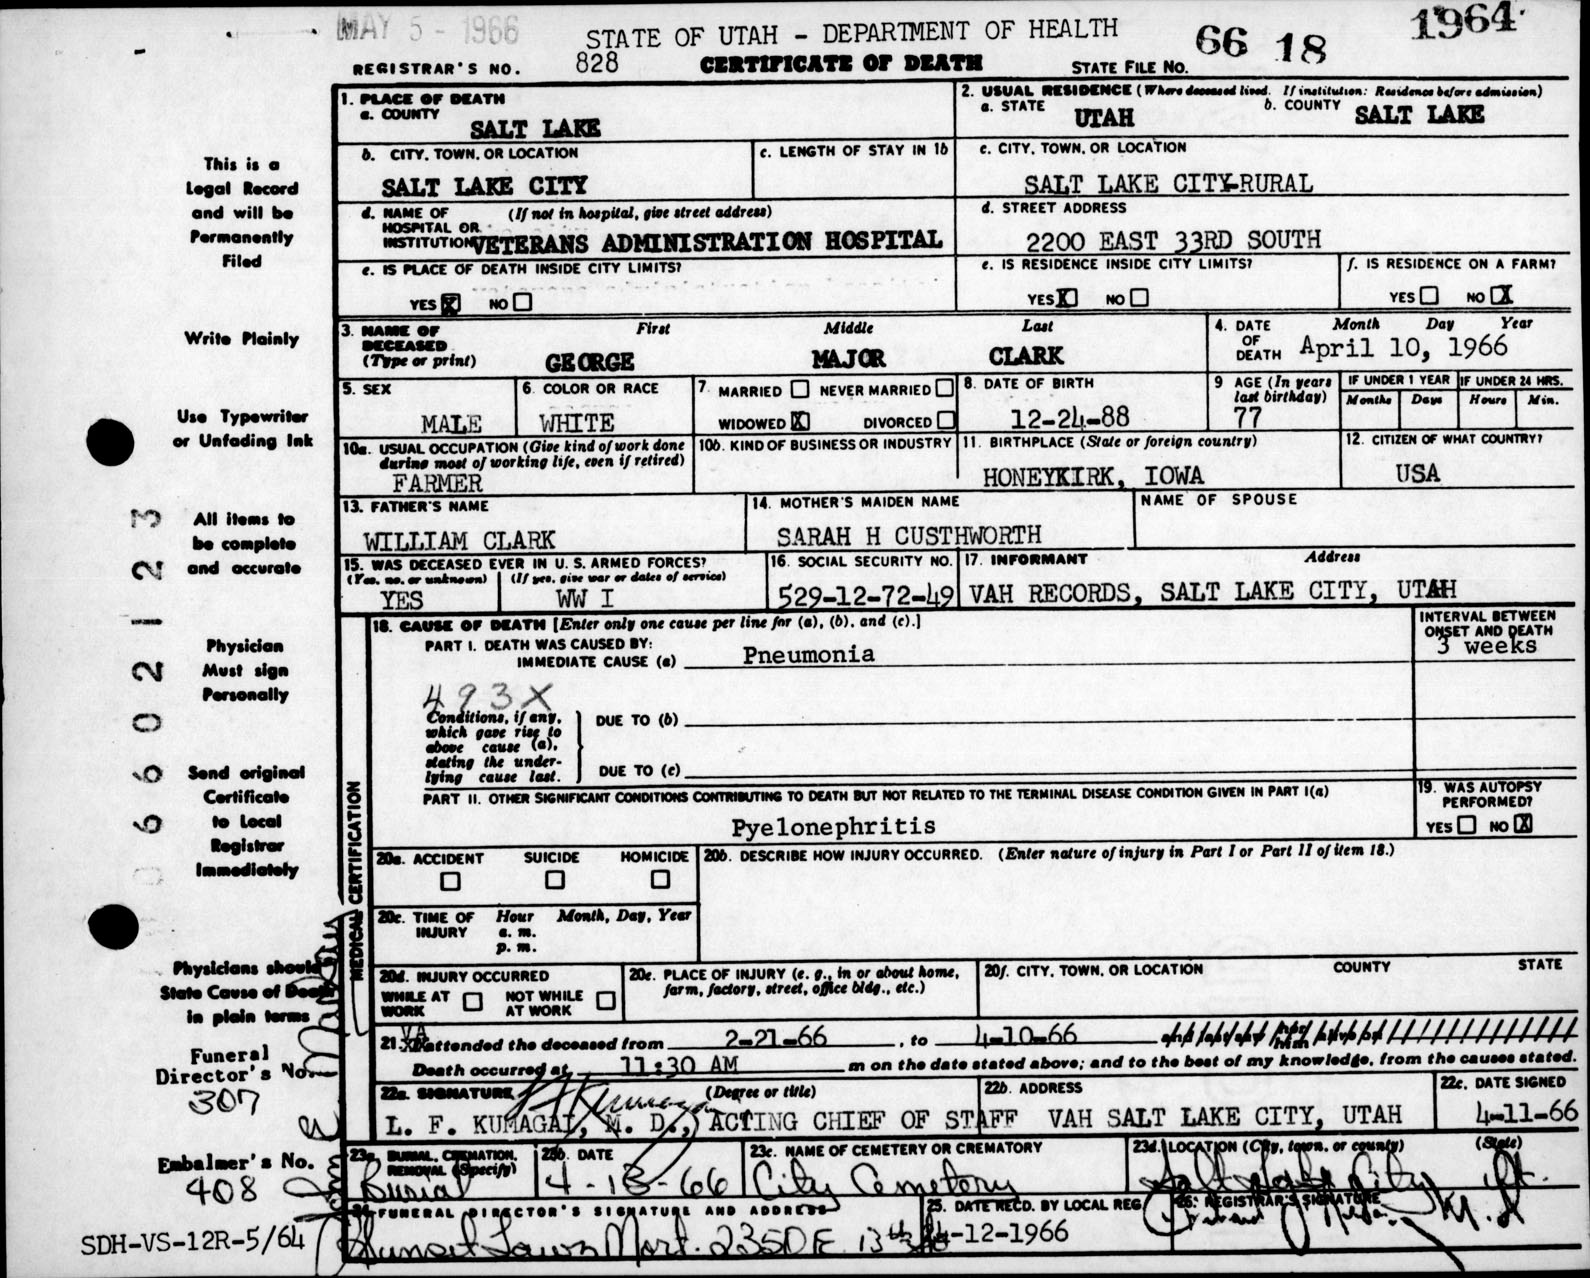 MAY 5 - 1966
STATE OF UTAH - DEPARTMENT OF HEALTH
66 18 1964
REGISTRAR'S NO. 828 CERTIFICATE OF DEATH STATE FILE NO.
1. PLACE OF DEATH
a. COUNTY
SALT LAKE
2. USUAL RESIDENCE (Where deceased lived. If institution: Residence before admission)
a. STATE UTAH b. COUNTY SALT LAKE
b. CITY, TOWN, OR LOCATION
SALT LAKE CITY
c. LENGTH OF STAY IN 1b
c. CITY, TOWN, OR LOCATION
SALT LAKE CITY-RURAL
d. NAME OF HOSPITAL OR INSTITUTION (If not in hospital, give street address)
VETERANS ADMINISTRATION HOSPITAL
d. STREET ADDRESS
2200 EAST 33RD SOUTH
e. IS PLACE OF DEATH INSIDE CITY LIMITS?
YES X NO
e. IS RESIDENCE INSIDE CITY LIMITS?
YES X NO
f. IS RESIDENCE ON A FARM?
YES NO X
3. NAME OF DECEASED (Type or print)
First Middle Last
GEORGE MAJOR CLARK
4. DATE OF DEATH Month Day Year
April 10, 1966
5. SEX
MALE
6. COLOR OR RACE
WHITE
7. MARRIED NEVER MARRIED
WIDOWED X DIVORCED
8. DATE OF BIRTH
12-24-88
9 AGE (In years last birthday)
77
IF UNDER 1 YEAR
Months Days
IF UNDER 24 HRS.
Hours Min.
10a. USUAL OCCUPATION (Give kind of work done during most of working life, even if retired)
FARMER
10b. KIND OF BUSINESS OR INDUSTRY
11. BIRTHPLACE (State or foreign country)
HONEYKIRK, IOWA
12. CITIZEN OF WHAT COUNTRY?
USA
13. FATHER'S NAME
WILLIAM CLARK
14. MOTHER'S MAIDEN NAME
SARAH H CUSTHWORTH
NAME OF SPOUSE
15. WAS DECEASED EVER IN U. S. ARMED FORCES?
(Yes, no, or unknown) (If yes, give war or dates of service)
YES WW I
16. SOCIAL SECURITY NO.
529-12-72-49
17. INFORMANT Address
VAH RECORDS, SALT LAKE CITY, UTAH
MEDICAL CERTIFICATION
18. CAUSE OF DEATH [Enter only one cause per line for (a), (b), and (c).]
PART I. DEATH WAS CAUSED BY:
IMMEDIATE CAUSE (a) Pneumonia
INTERVAL BETWEEN ONSET AND DEATH
3 weeks
493X
Conditions, if any, which gave rise to above cause (a), stating the underlying cause last.
DUE TO (b)
DUE TO (c)
PART II. OTHER SIGNIFICANT CONDITIONS CONTRIBUTING TO DEATH BUT NOT RELATED TO THE TERMINAL DISEASE CONDITION GIVEN IN PART I(a)
Pyelonephritis
19. WAS AUTOPSY PERFORMED?
YES NO X
20a. ACCIDENT SUICIDE HOMICIDE
20b. DESCRIBE HOW INJURY OCCURRED. (Enter nature of injury in Part I or Part II of item 18.)
20c. TIME OF INJURY Hour Month, Day, Year
a. m.
p. m.
20d. INJURY OCCURRED
WHILE AT WORK NOT WHILE AT WORK
20e. PLACE OF INJURY (e. g., in or about home, farm, factory, street, office bldg., etc.)
20f. CITY, TOWN, OR LOCATION COUNTY STATE
21. VA attended the deceased from 2-21-66, to 4-10-66
Death occurred at 11:30 AM m on the date stated above; and to the best of my knowledge, from the causes stated.
22a. SIGNATURE (Degree or title)
L. F. KUMAGAI, M. D., ACTING CHIEF OF STAFF
22b. ADDRESS
VAH SALT LAKE CITY, UTAH
22c. DATE SIGNED
4-11-66
23a. BURIAL, CREMATION, REMOVAL (Specify)
Burial
23b. DATE
4-13-66
23c. NAME OF CEMETERY OR CREMATORY
City Cemetery
23d. LOCATION (City, town, or county) (State)
Salt Lake City Ut.
24. FUNERAL DIRECTOR'S SIGNATURE AND ADDRESS
Sunset Lawn Mort. 2350 E. 13th So
25. DATE RECD. BY LOCAL REG.
4-12-1966
26. REGISTRAR'S SIGNATURE
This is a
Legal Record
and will be
Permanently
Filed
Write Plainly
Use Typewriter
or Unfading Ink
All items to
be complete
and accurate
Physician
Must sign
Personally
Send original
Certificate
to Local
Registrar
Immediately
Physicians should
State Cause of Death
in plain terms
Funeral
Director's No.
307
Embalmer's No.
408
SDH-VS-12R-5/64
0660212 3